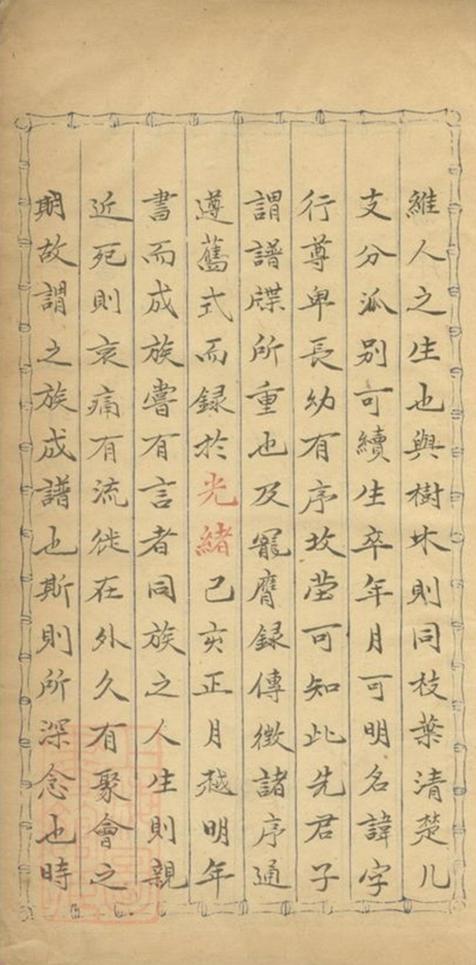 維人之生也與樹木則同枝葉清楚凡
支分派別可續生卒年月可明名諱字
行尊卑長幼有序坟茔可知此先君子
謂譜牒所重也及寵膺録傳徵諸序通
遵舊式而録於光緒己亥正月越明年
書而成族嘗有言者同族之人生則親
近死則哀痛有流徙在外久有聚會之
期故謂之族成譜也斯則所深念也時